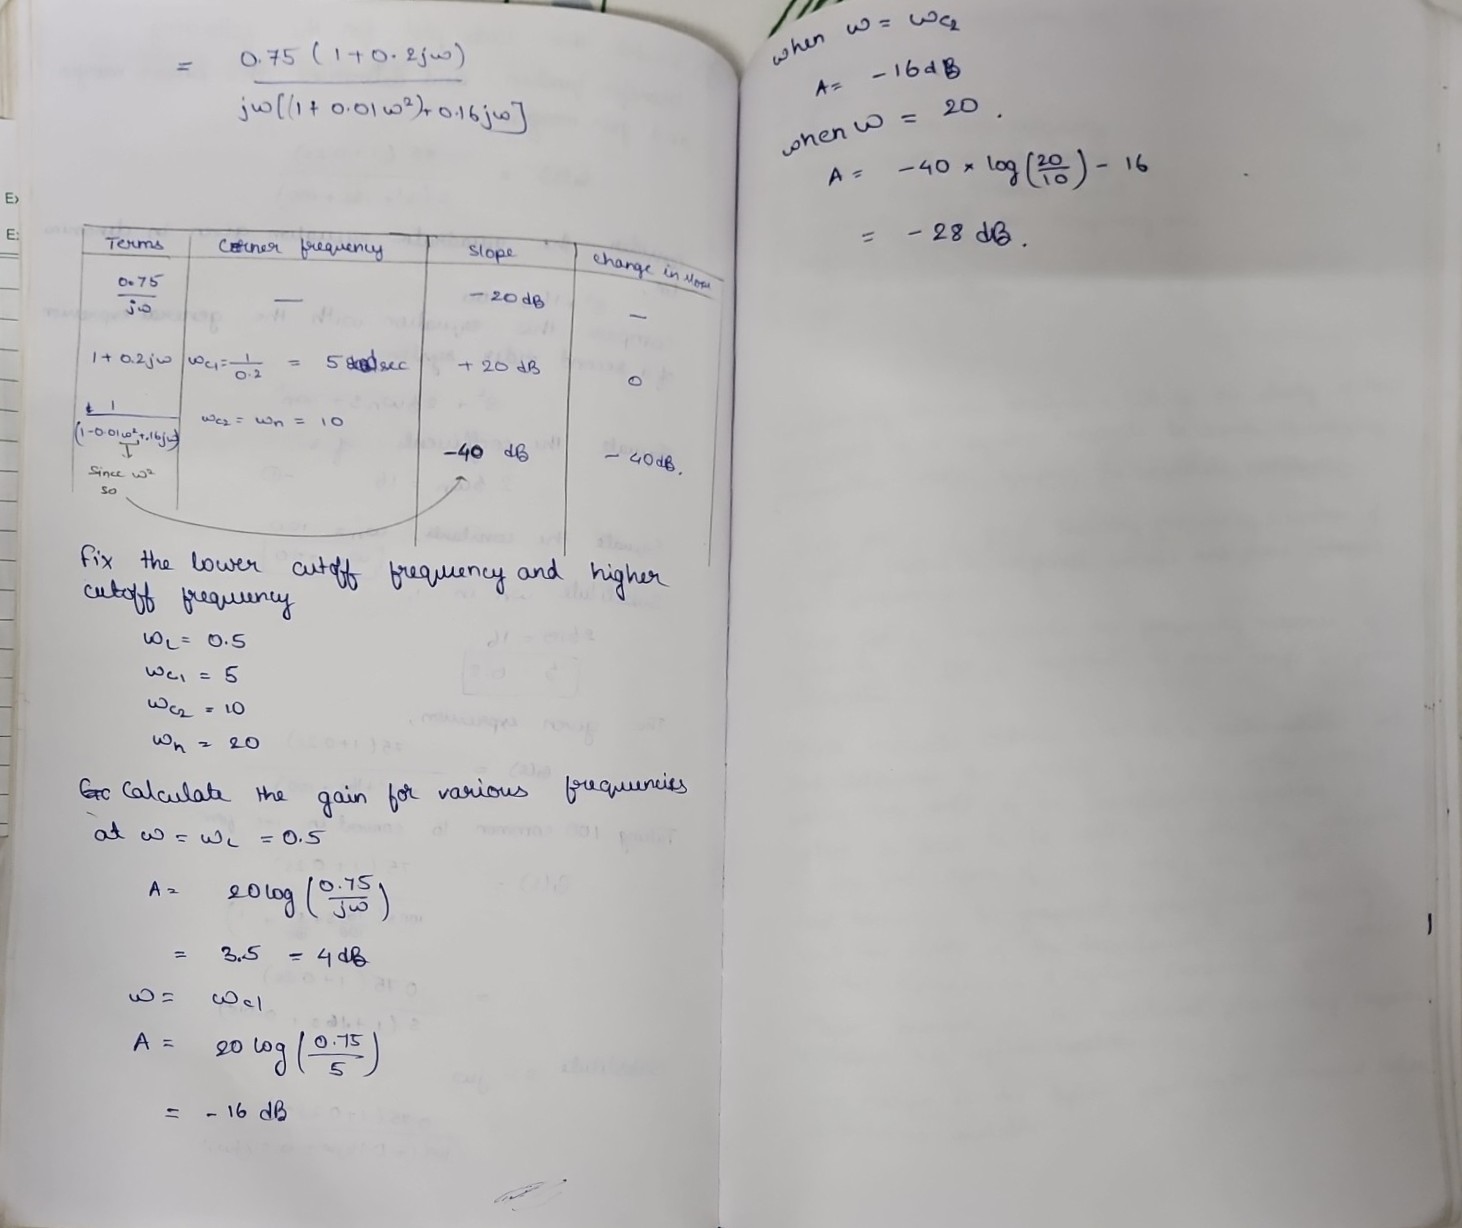 = 0.75 (1+0.2jω)
jω[(1+0.01ω²)+0.16jω]
Terms Corner frequency Slope change in slope
0.75/jω — -20dB —
1+0.2jω ωc1 = 1/0.2 = 5 sec +20 dB 0
1/(1-0.01ω²+.16jω) ωc2 = ωn = 10 -40 dB -40dB.
Since ω²
so
Fix the lower cutoff frequency and higher
cutoff frequency
ωL = 0.5
ωc1 = 5
ωc2 = 10
ωh = 20
Calculate the gain for various frequencies
at ω = ωL = 0.5
A = 20log(0.75/jω)
= 3.5 = 4dB
ω = ωc1
A = 20 log(0.75/5)
= -16 dB
when ω = ωc2
A = -16dB
when ω = 20.
A = -40 × log(20/10) - 16
= -28 dB.